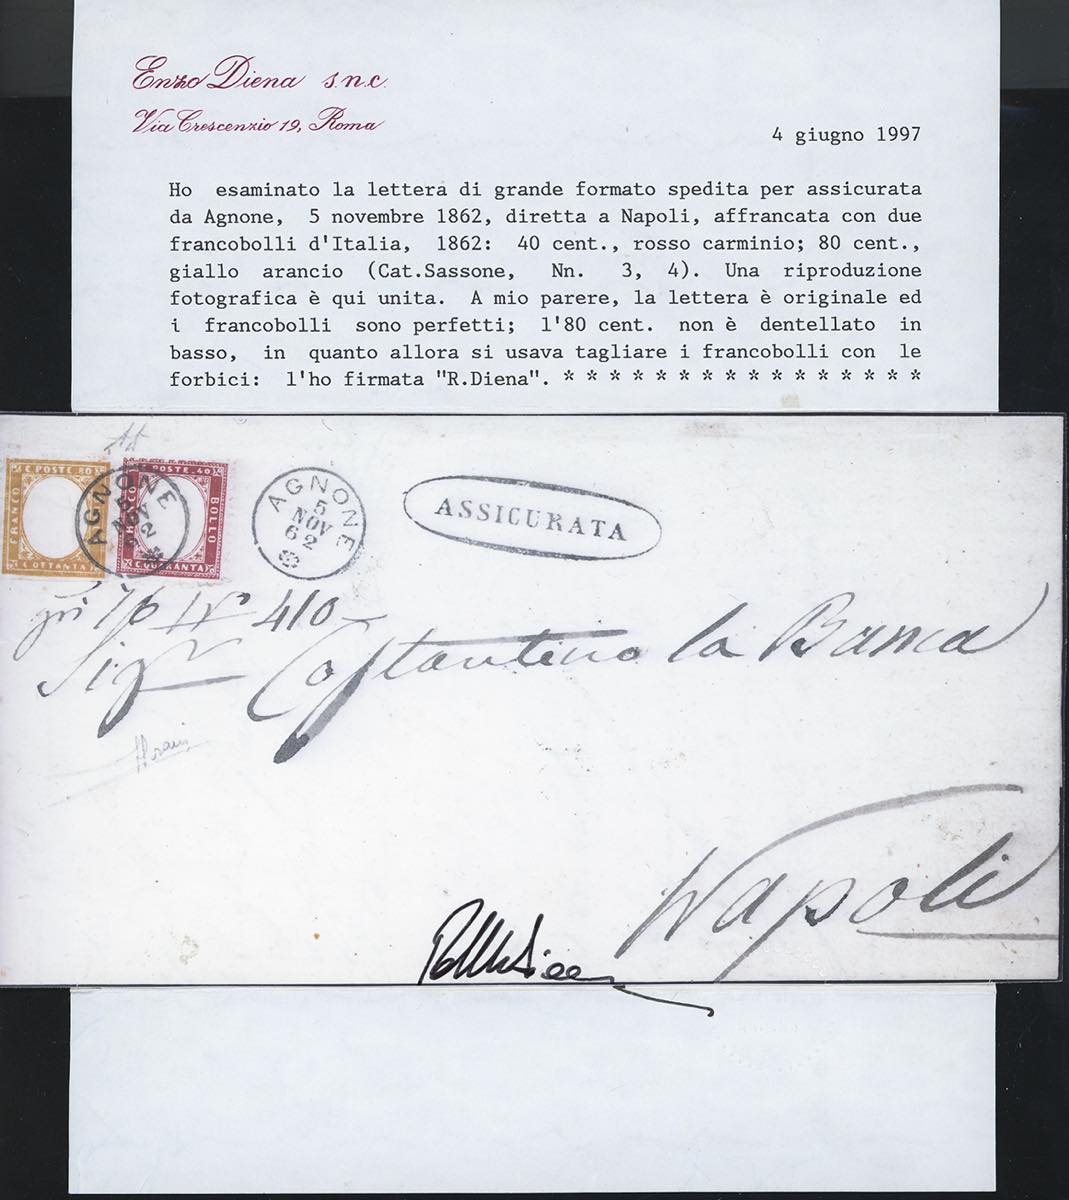 Enzo Diena s.n.c.
Via Crescenzio 19, Roma
4 giugno 1997
Ho esaminato la lettera di grande formato spedita per assicurata
da Agnone, 5 novembre 1862, diretta a Napoli, affrancata con due
francobolli d'Italia, 1862: 40 cent., rosso carminio; 80 cent.,
giallo arancio (Cat.Sassone, Nn. 3, 4). Una riproduzione
fotografica è qui unita. A mio parere, la lettera è originale ed
i francobolli sono perfetti; l'80 cent. non è dentellato in
basso, in quanto allora si usava tagliare i francobolli con le
forbici: l'ho firmata "R.Diena". * * * * * * * * * * * * * * * *
C. POSTE 80
FRANCO
C. OTTANTA
C. POSTE. 40
FRANCO
BOLLO
C. QUARANTA
AGNONE
5
NOV
62
AGNONE
5
NOV
62
ASSICURATA
N° 410
Sigr Costantino la Banca
Napoli